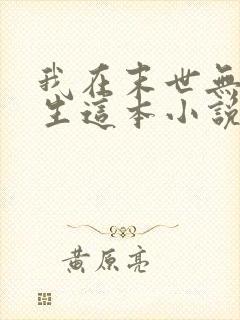 我在末世無
生這本小說
黃原亮